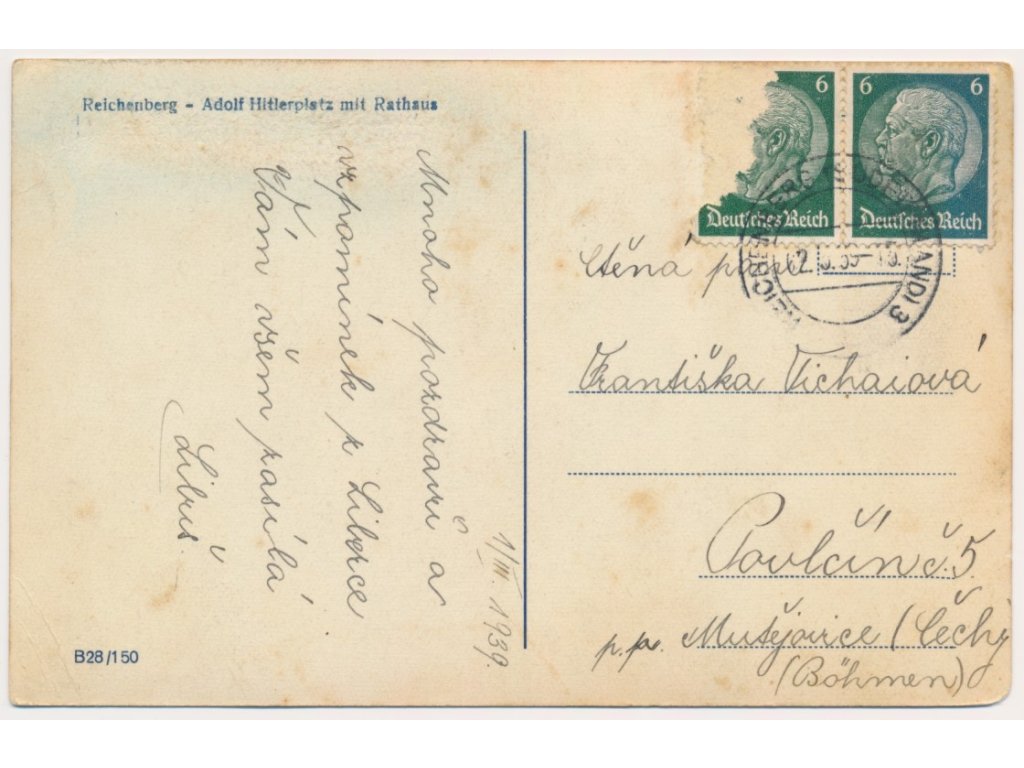 Reichenberg - Adolf Hitlerplatz mit Rathaus
Mnoho pozdravů a
vzpomínek z Liberce
Vám všem posílá
Libuš.
1/III. 1939.
B28/150
6
Deutsches Reich
6
Deutsches Reich
Ctěná paní
Františka Tichaiová
Povlčín č. 5.
p.p. Mutějovice (Čechy
(Böhmen)